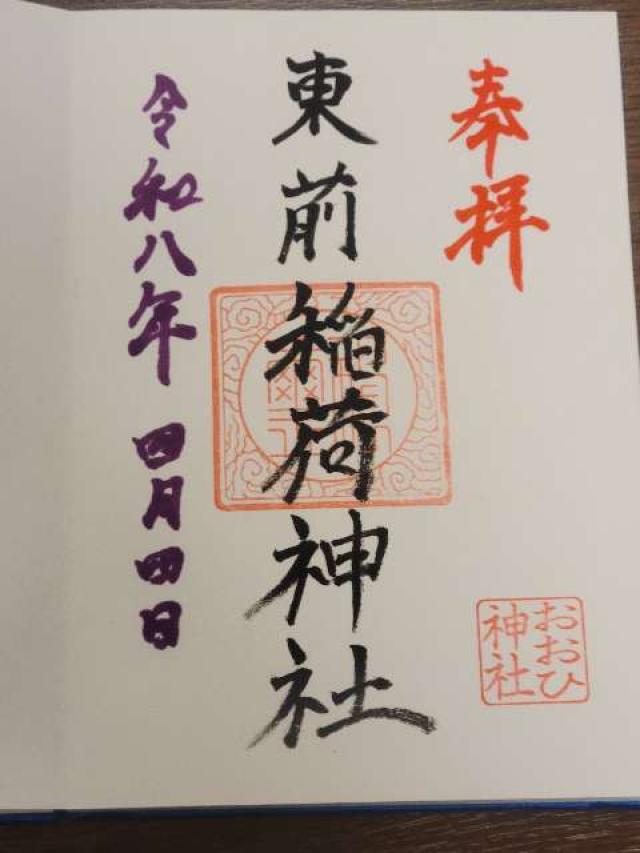 奉拝
おおひ
神社
東前稲荷神社
令和八年 四月四日